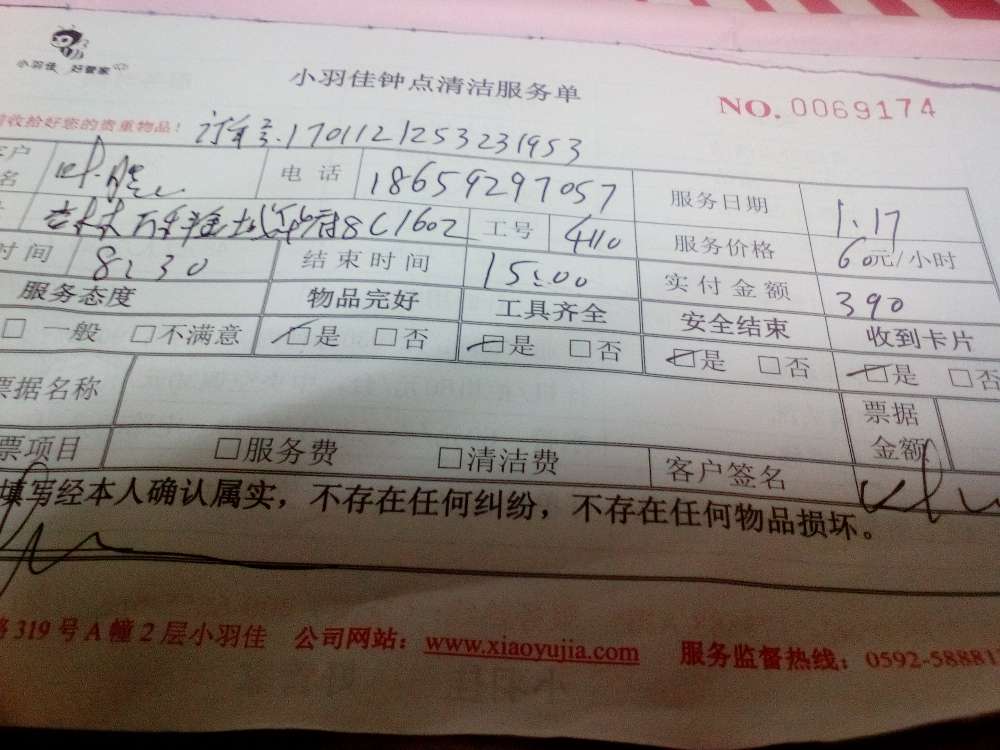 小羽佳 好管家
小羽佳钟点清洁服务单
NO.0069174
收拾好您的贵重物品！
订单号.170112125323 1953
客户 名 叶 电话 18659297057 服务日期 1.17
8C1602 工号 4110 服务价格 60元/小时
时间 8:30 结束时间 15:00 实付金额 390
服务态度 物品完好 工具齐全 安全结束 收到卡片
□ 一般 □不满意 □是 □否 □是 □否 □是 □否 □是 □否
票据名称 票据金额
票项目 □服务费 □清洁费 客户签名
填写经本人确认属实，不存在任何纠纷，不存在任何物品损坏。
路319号A幢2层小羽佳 公司网站：www.xiaoyujia.com 服务监督热线：0592-58881